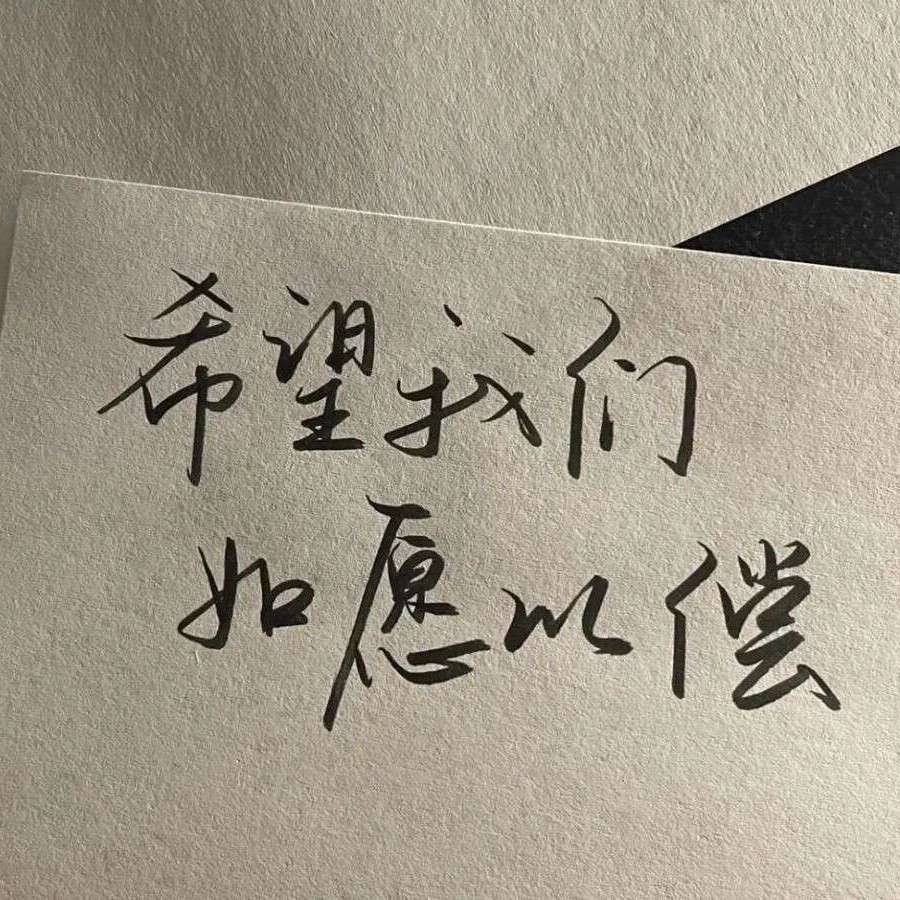 希望我们
如愿以偿